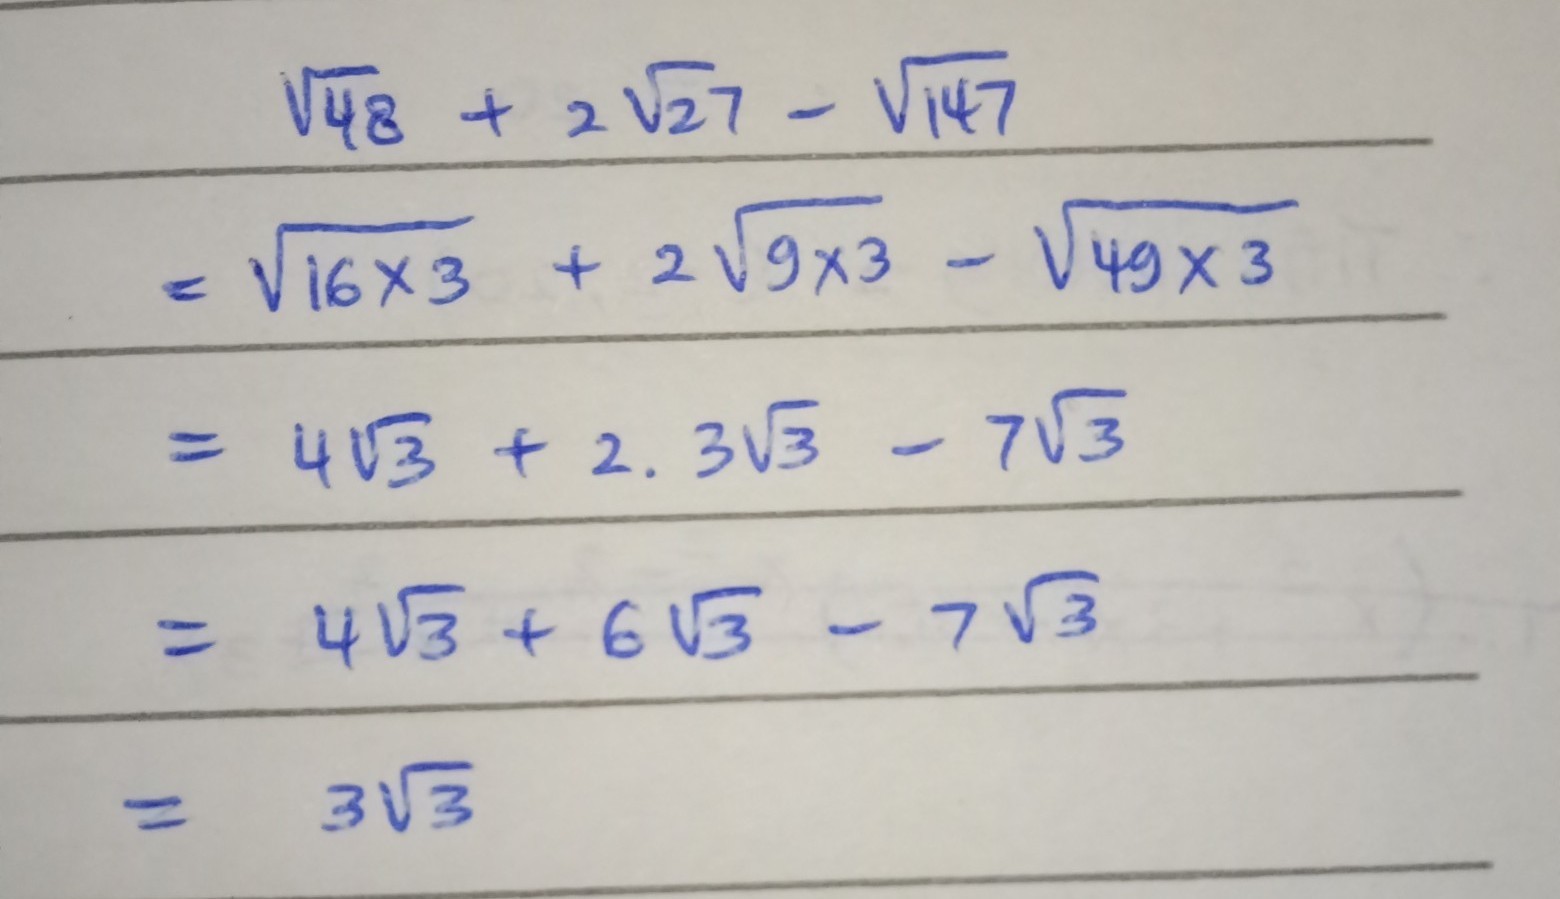 √48 + 2√27 - √147
= √16×3 + 2√9×3 - √49×3
= 4√3 + 2. 3√3 - 7√3
= 4√3 + 6√3 - 7√3
= 3√3